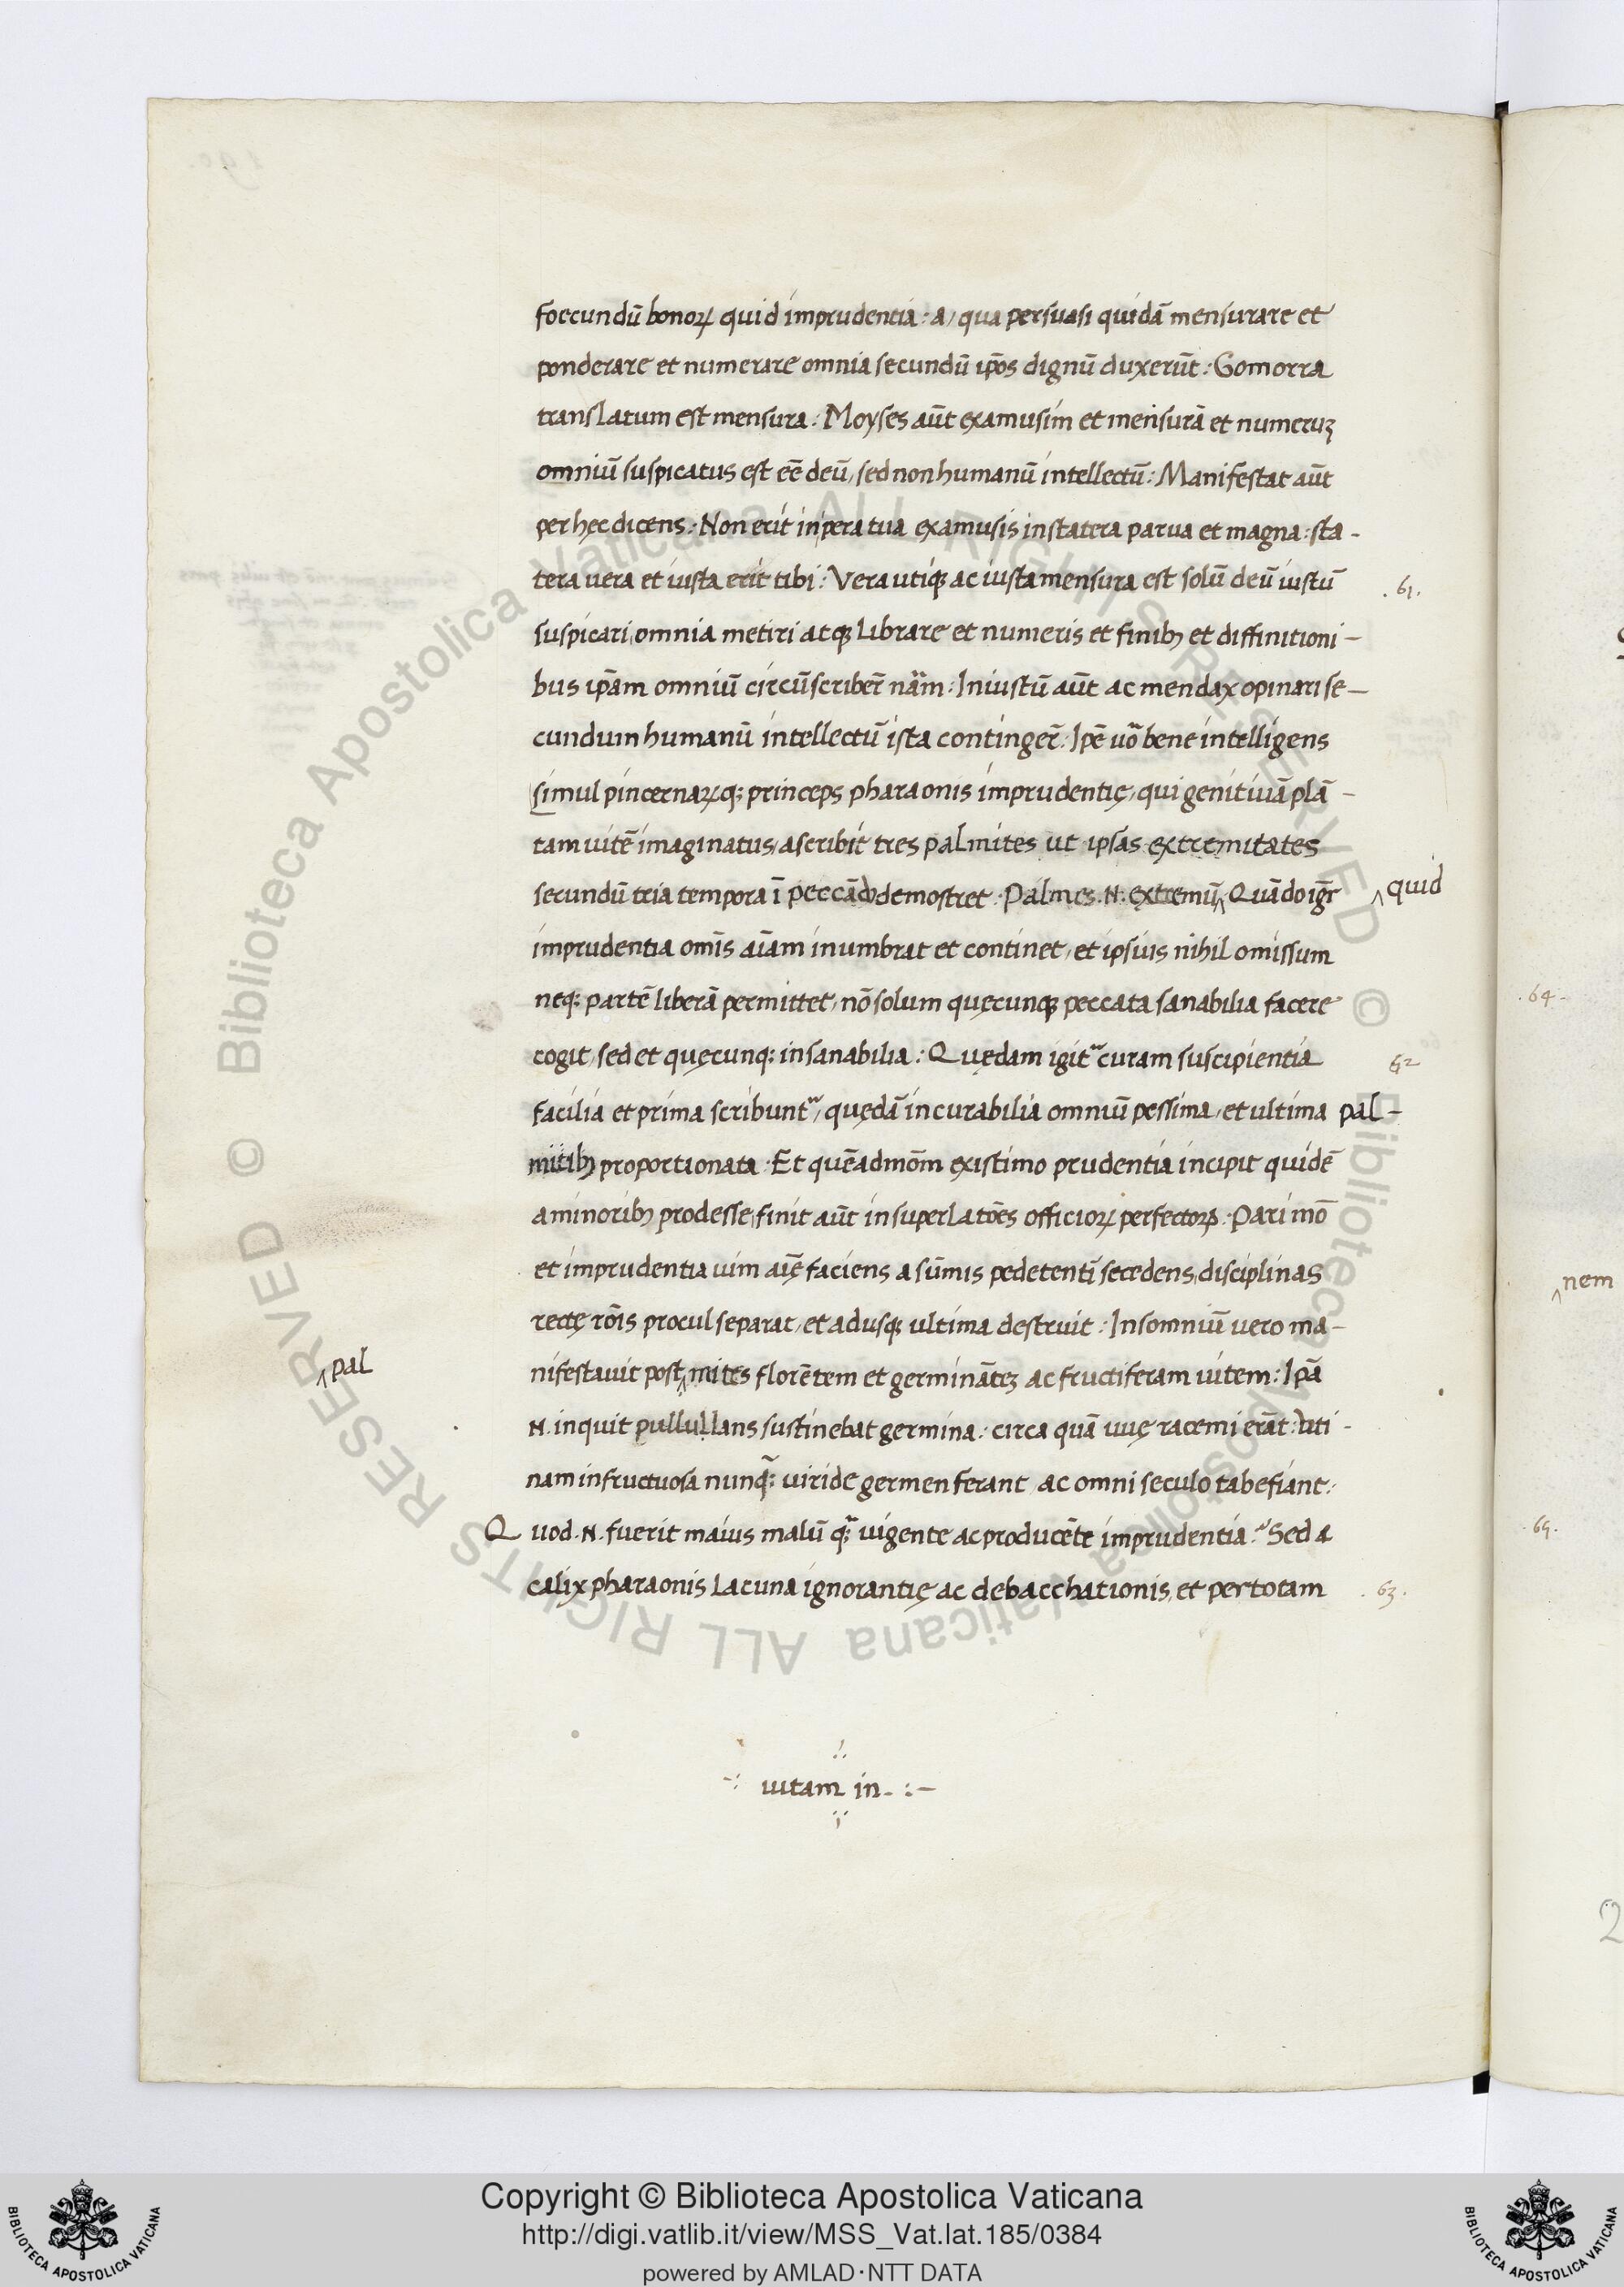 foecundū bonoꝝ quid imprudentia : a, qua persuasi quidā mensurare et
ponderare et numerare omnia secundū ip̄os dignū duxerūt : Gomorra
translatum est mensura : Moyses aūt examusim et mensurā et numeruȝ
omniū suspicatus est eē deū, sed non humanū intellectū : Manifestat aūt
per hęc dicens : Non erit in pera tua examusis in statera parua et magna : sta-
tera uera et iusta erit tibi : Vera utiqꝫ ac iusta mensura est solū deū iustū
.61.
suspicari omnia metiri atqꝫ librare et numeris et finibꝫ et diffinitioni-
bus ip̄am omniū circūscriber̄ nām : Iniustū aūt ac mendax opinari se-
cundum humanū intellectū ista continger̄ : Ip̄e uō bene intelligens
simul pincernaꝝqꝫ princeps pharaonis imprudentię, qui genitiuā plā-
tam uitē imaginatus, ascribit tres palmites ut ipsas extremitates
secundū tria tempora ī peccādo demostret : Palmes .N. extremū ‸ Quādo igr̄
‸ quid
imprudentia omīs aīam inumbrat et continet, et ipsius nihil omissum
neqꝫ partē liberā permittet, nō solum quęcunqꝫ peccata sanabilia facere
cogit, sed et quęcunqꝫ insanabilia : Quędam igit͛ curam suscipientia
62
facilia et prima scribunt͛, quędā incurabilia omniū pessima, et ultima pal-
mitibꝫ proportionata : Et quēadmōm existimo prudentia incipit quidē
a minoribꝫ prodesse, finit aūt in superlatōes officioꝝ perfectoꝝ : Pari mō
et imprudentia uim aīę faciens a sūmis pedetentī secedens, disciplinas
rectę rōis procul separat, et adusqꝫ ultima destruit : Insomniū uero ma-
nifestauit post ‸ mites florētem et germinātēȝ ac fructiferam uitem : Ip̄a
‸ pal
.N. inquit pullullans sustinebat germina : circa quā uuę racemi erāt : uti-
nam infructuosa nunq̄ꝫ uiride germen ferant, ac omni seculo tabefiant :
Quod .N. fuerit maius malū q̄ꝫ uigente ac producēte imprudentia : Sed &
calix pharaonis lacuna ignorantię ac debacchationis, et per totam
.63.
uitam in
.64.
‸ nem
.65.
Copyright © Biblioteca Apostolica Vaticana
http://digi.vatlib.it/view/MSS_Vat.lat.185/0384
powered by AMLAD·NTT DATA